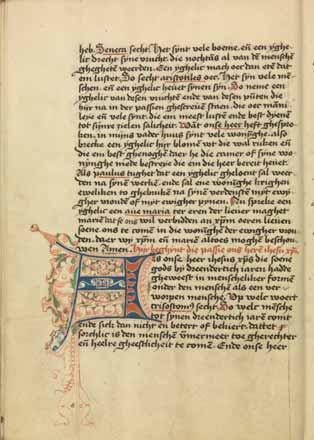 heb. Seneca secht. Het synt vele boeme. en̄ een yghe
lic drecht syne vrucht. die nochtās al van dē menschē
gheghetē weerden. Een yghelic mach oer dan etē dat
em lustet. Do secht aristotiles oec. Het syn vele mē
schen. en̄ een yghelic heuet synen syn. Do neme een
yghelic van desen vruchtē ende van desen pūten die
hier na in der passien ghescreuē staen. die oec māni
lexe en̄ vele synt. die em meest lustē ende best dyenē
tot synre zielen salicheit. Want onse heer heft ghespro
ken. in mijns vader huus synt vele wonīghe. also
brecke een yghelic hijr blomē
die em best ghenoghē dat he die camer of syne wo
nijnghe mede bestreye die em die heer bereit heuet.
Als paulus tughet dat een yghelic gheloent sal weer
den na synē werkē. ende sal ene wonīghe krighen
ewelikē to ghebrukē na synē verdenstē myt ewy
gher wonde of myt ewigher pynen. Nu spreke een
yghelic een aue maria ter eren der liener maghet
marie dat se ons wil verbidden an xp̄m oeren lienen
soene ons te comē in die wonīghe der ewigher won
den. daer wy xp̄m en̄ mariē altoes moghē beschou
wen Amen. Hijr beghynt die passie ons herē ihesu xp̄i.
Als onse heer ihesus xp̄s die soene
gods by dreendertich iaren hadde
gheweest in menscheliker formē
onder den menschē als een ver
worpen mensche. Op welc woert
crisostom9 secht. Do welc mēsche
tot synen dreendertich iarē comt
ende sich dan nicht en betert of bekiert. dattet
sorchlic is den menschē vmermeer tot gherechter
en̄ heelre gheestlicheit te comē. Ende onse heer